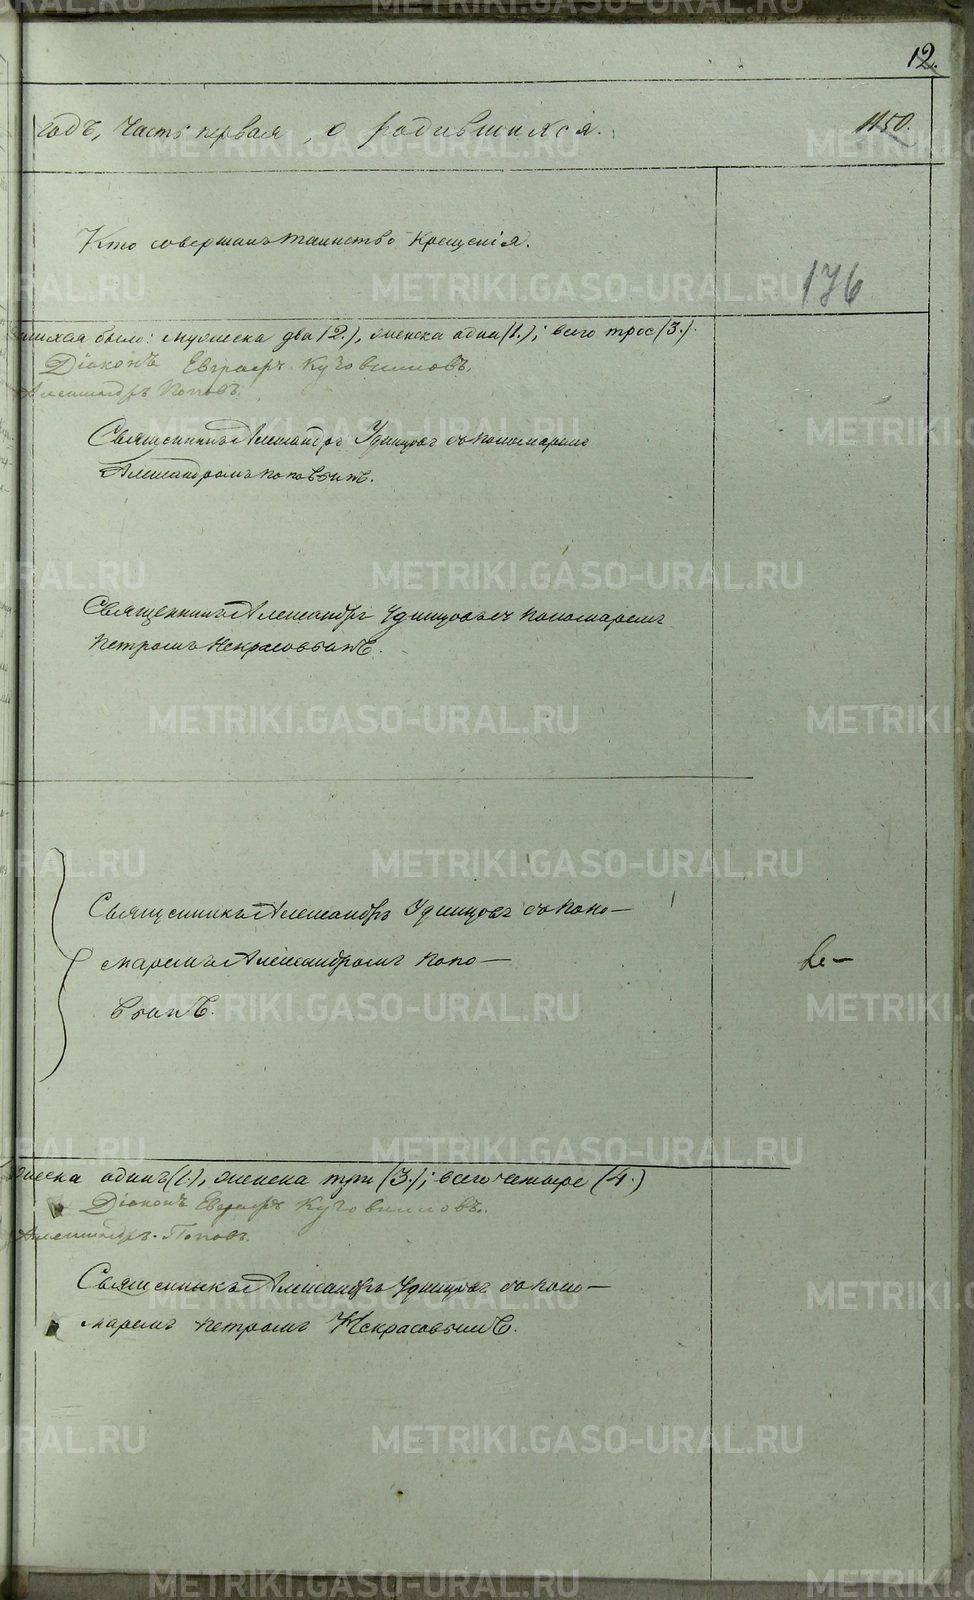 12.
годъ, Часть первая, о родившихся.
1150.
Кто совершалъ таинство Крещенія.
176
было: мужеска два (2.), женска одна (1.); всего трое (3.).
Діаконъ Евграфъ
Александръ Поповъ.
Священникъ Александръ Удинцовъ съ пономаремъ
Александромъ Поповымъ.
Священникъ Александръ Удинцовъ съ пономаремъ
Петромъ Некрасовымъ.
Священникъ Александръ Удинцовъ съ поно-
маремъ Александромъ Попо-
вымъ.
одинъ (1.), женска три (3.); всего четыре (4.)
Діаконъ Евграфъ
Александръ Поповъ.
Священникъ Александръ Удинцовъ съ поно-
маремъ Петромъ Некрасовымъ.
METRIKI.GASO-URAL.RU